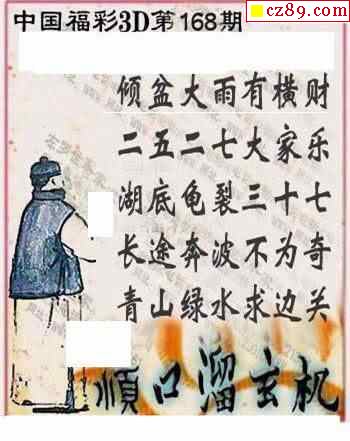 cz89.com
中国福彩3D第168期
倾盆大雨有横财
二五二七大家乐
湖底龟裂三十七
长途奔波不为奇
青山绿水求边关
顺口溜玄机